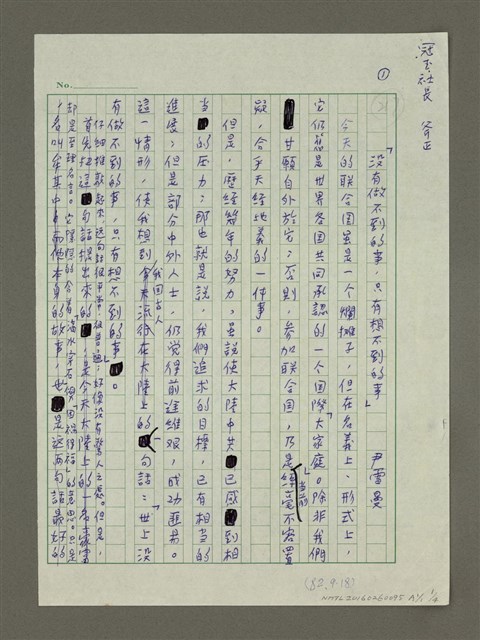 冠玉社長 斧正
①
No.
「沒有做不到的事,只有想不到的事」
尹雪曼
今天的聯合國雖是一个爛攤子,但在名義上、形式上,
它仍舊是世界各國共同承認的一个國際大家庭。除非我們
甘願自外於它;否則,參加聯合國,乃是「當前」不容置
疑,合乎天經地義的一件事。
但是,歷經幾年的努力,雖說使大陸中共已感到相
當的压力;那也就是說,我們追求的目標,已有相當的
進度;但是部分中外人士,仍覺得前途維艱,成功匪易。
這一情形,使我想到我國古人流行在大陸上的一句話:「世上沒
有做不到的事,只有想不到的事」。
仔細推敲起來,這句話很平常,很普通;好像沒有驚人之處。但是,
首先把這句話提出來的,是今天大陸上的一名
却是至理名言。
看叫牟其中
的故事,也是這兩句話最好的
(82.9.18)
NMTL20160260095 A1/1 1/4